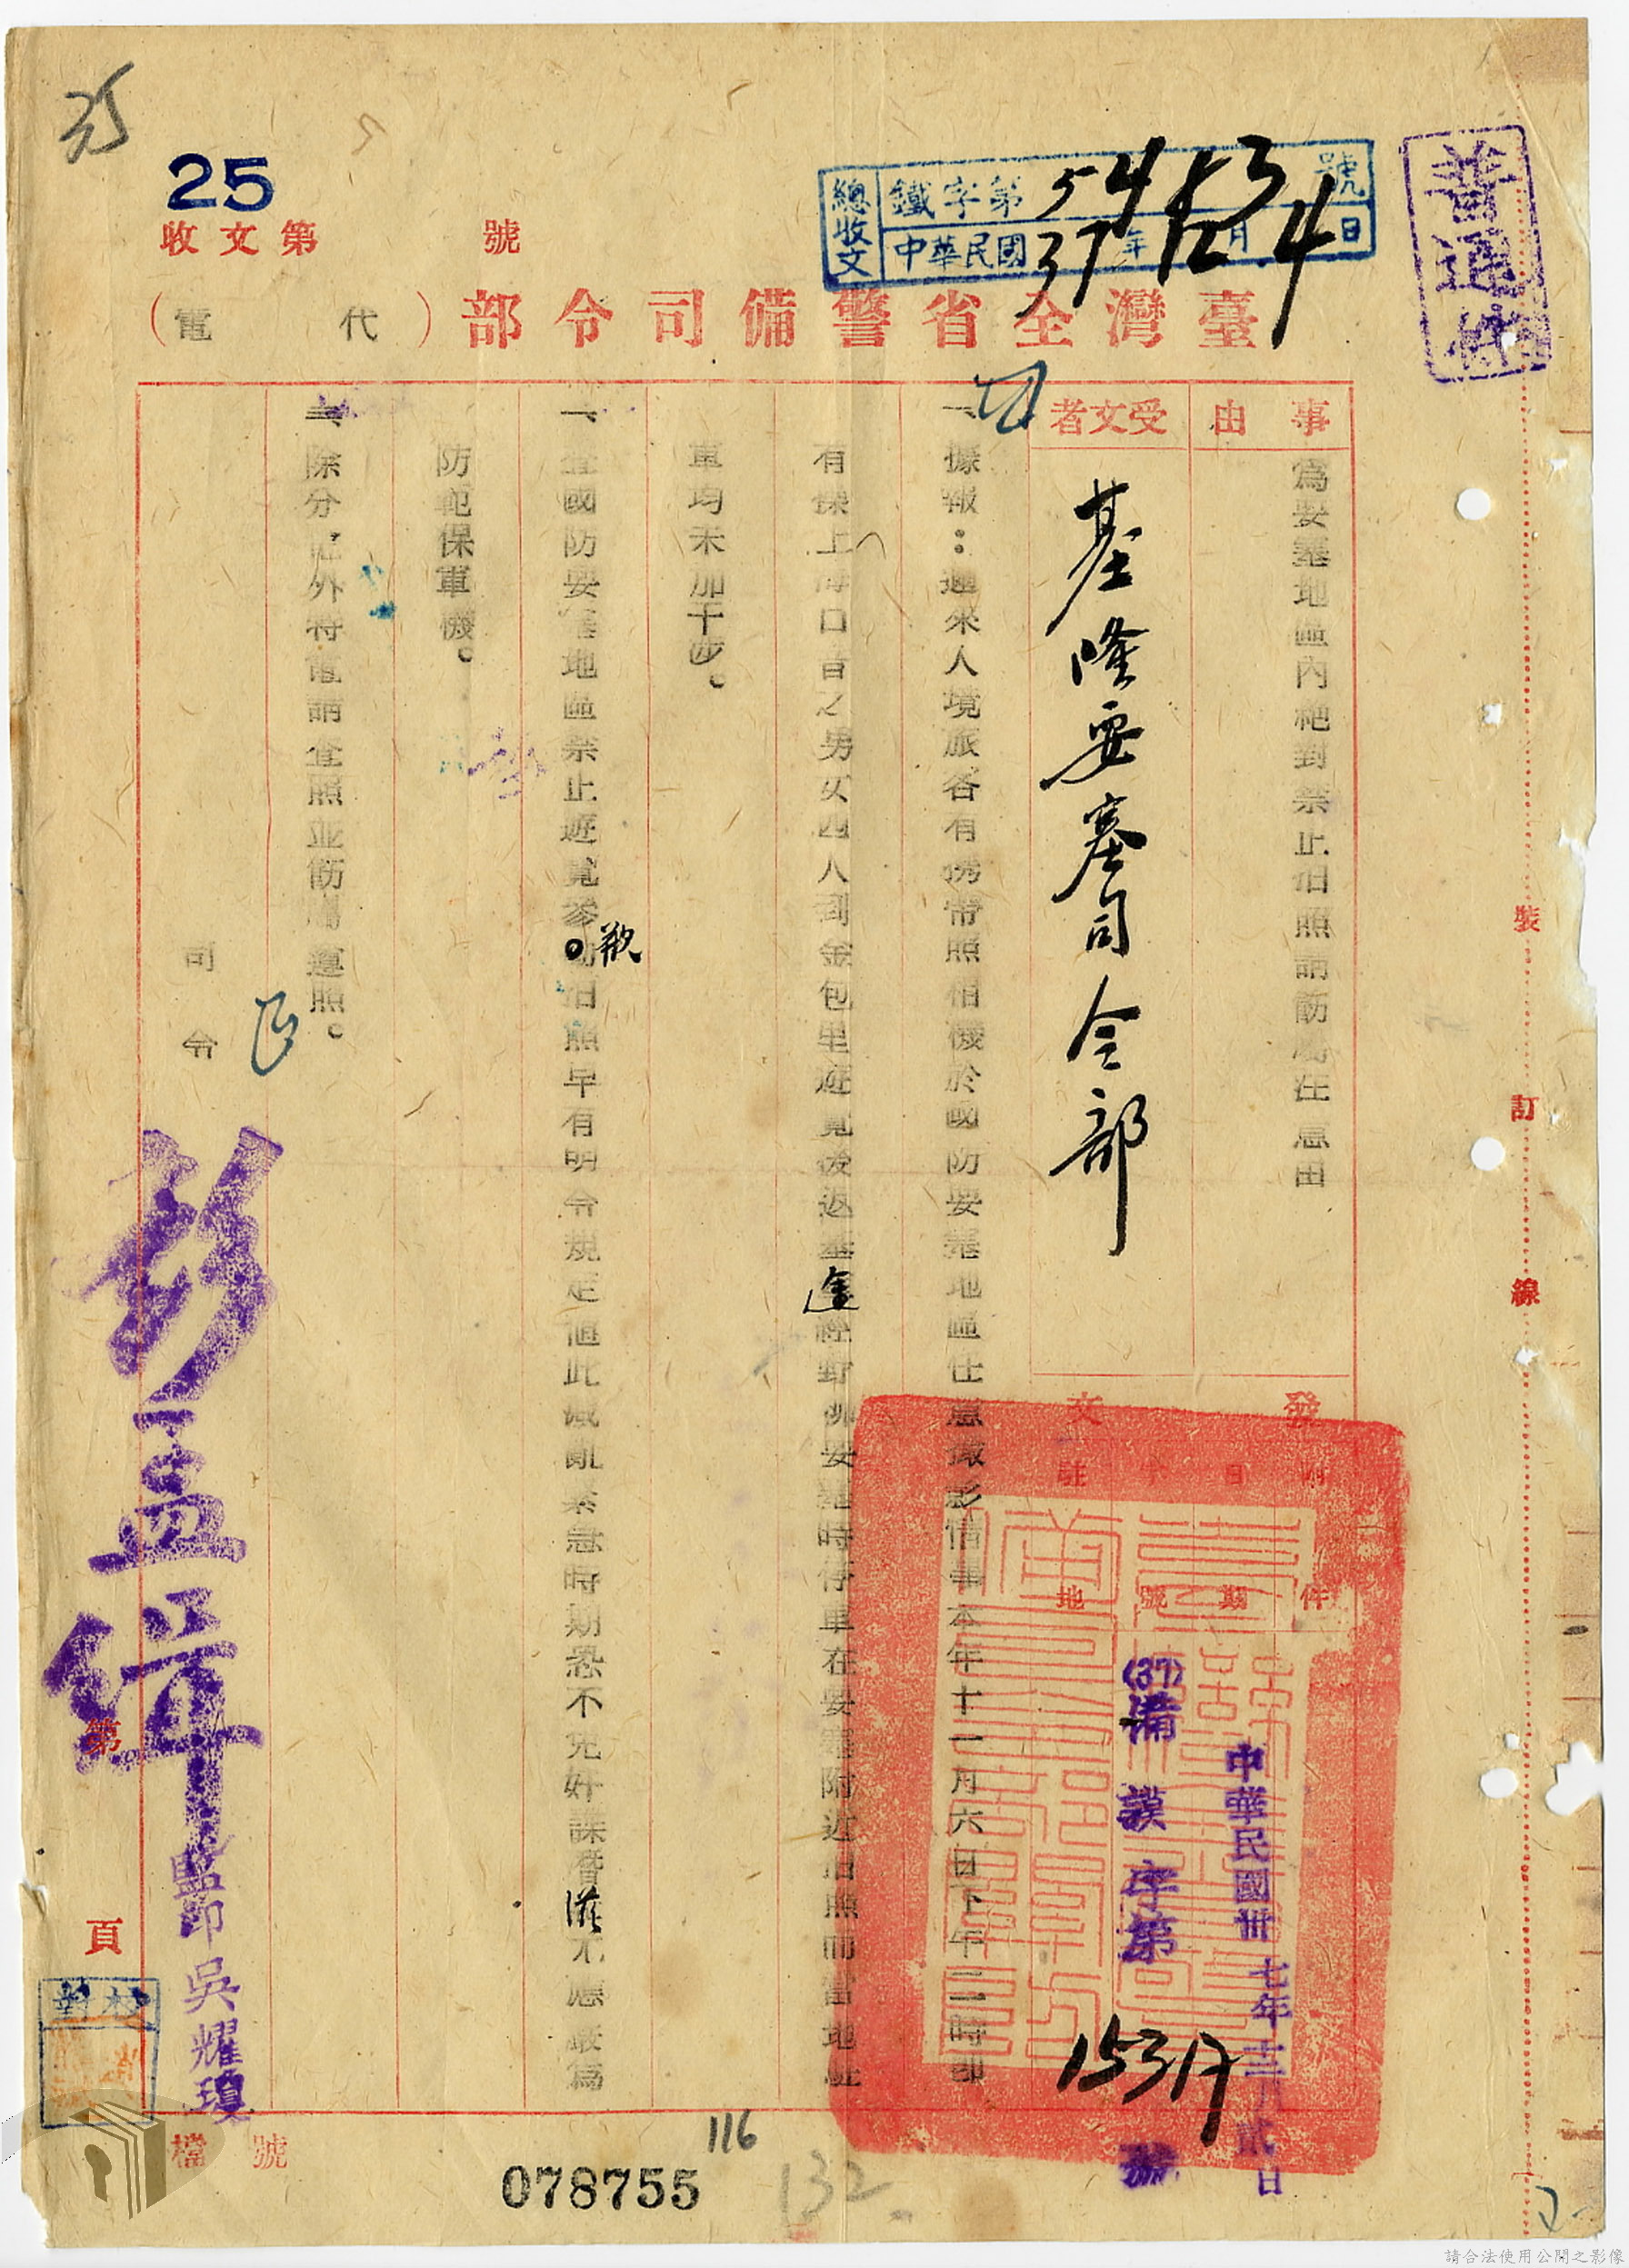 25
收文第 號
總收文 鐵字第5453號
中華民國37年12月4日
普通件
臺灣全省警備司令部(代電)
事由
為要塞地區內絕對禁止拍照請飭屬注意由
受文者
基隆要塞司令部
發文
附件
日期
字號
駐地
中華民國卅七年十二月貳日
(37)備謨字第15317號
一、據報:邇來入境旅客有携帶照相機於國防要塞地區任意攝影情事本年十一月六日下午二時即
有操上海口音之男女四人到金包里遊覽後返基途經野柳要塞時停車在要塞附近拍照而當地駐
軍均未加干涉。
一、查國防要塞地區禁止遊覽參觀拍照早有明令規定值此戡亂緊急時期恐不免奸諜潛滋不應嚴為
防範保軍機。
三、除分電外特電請查照並飭屬遵照。
司令
彭孟緝
監印吳耀瓊
校對
第
頁
檔號
078755
116
132
裝
訂
線
請合法使用公開之影像